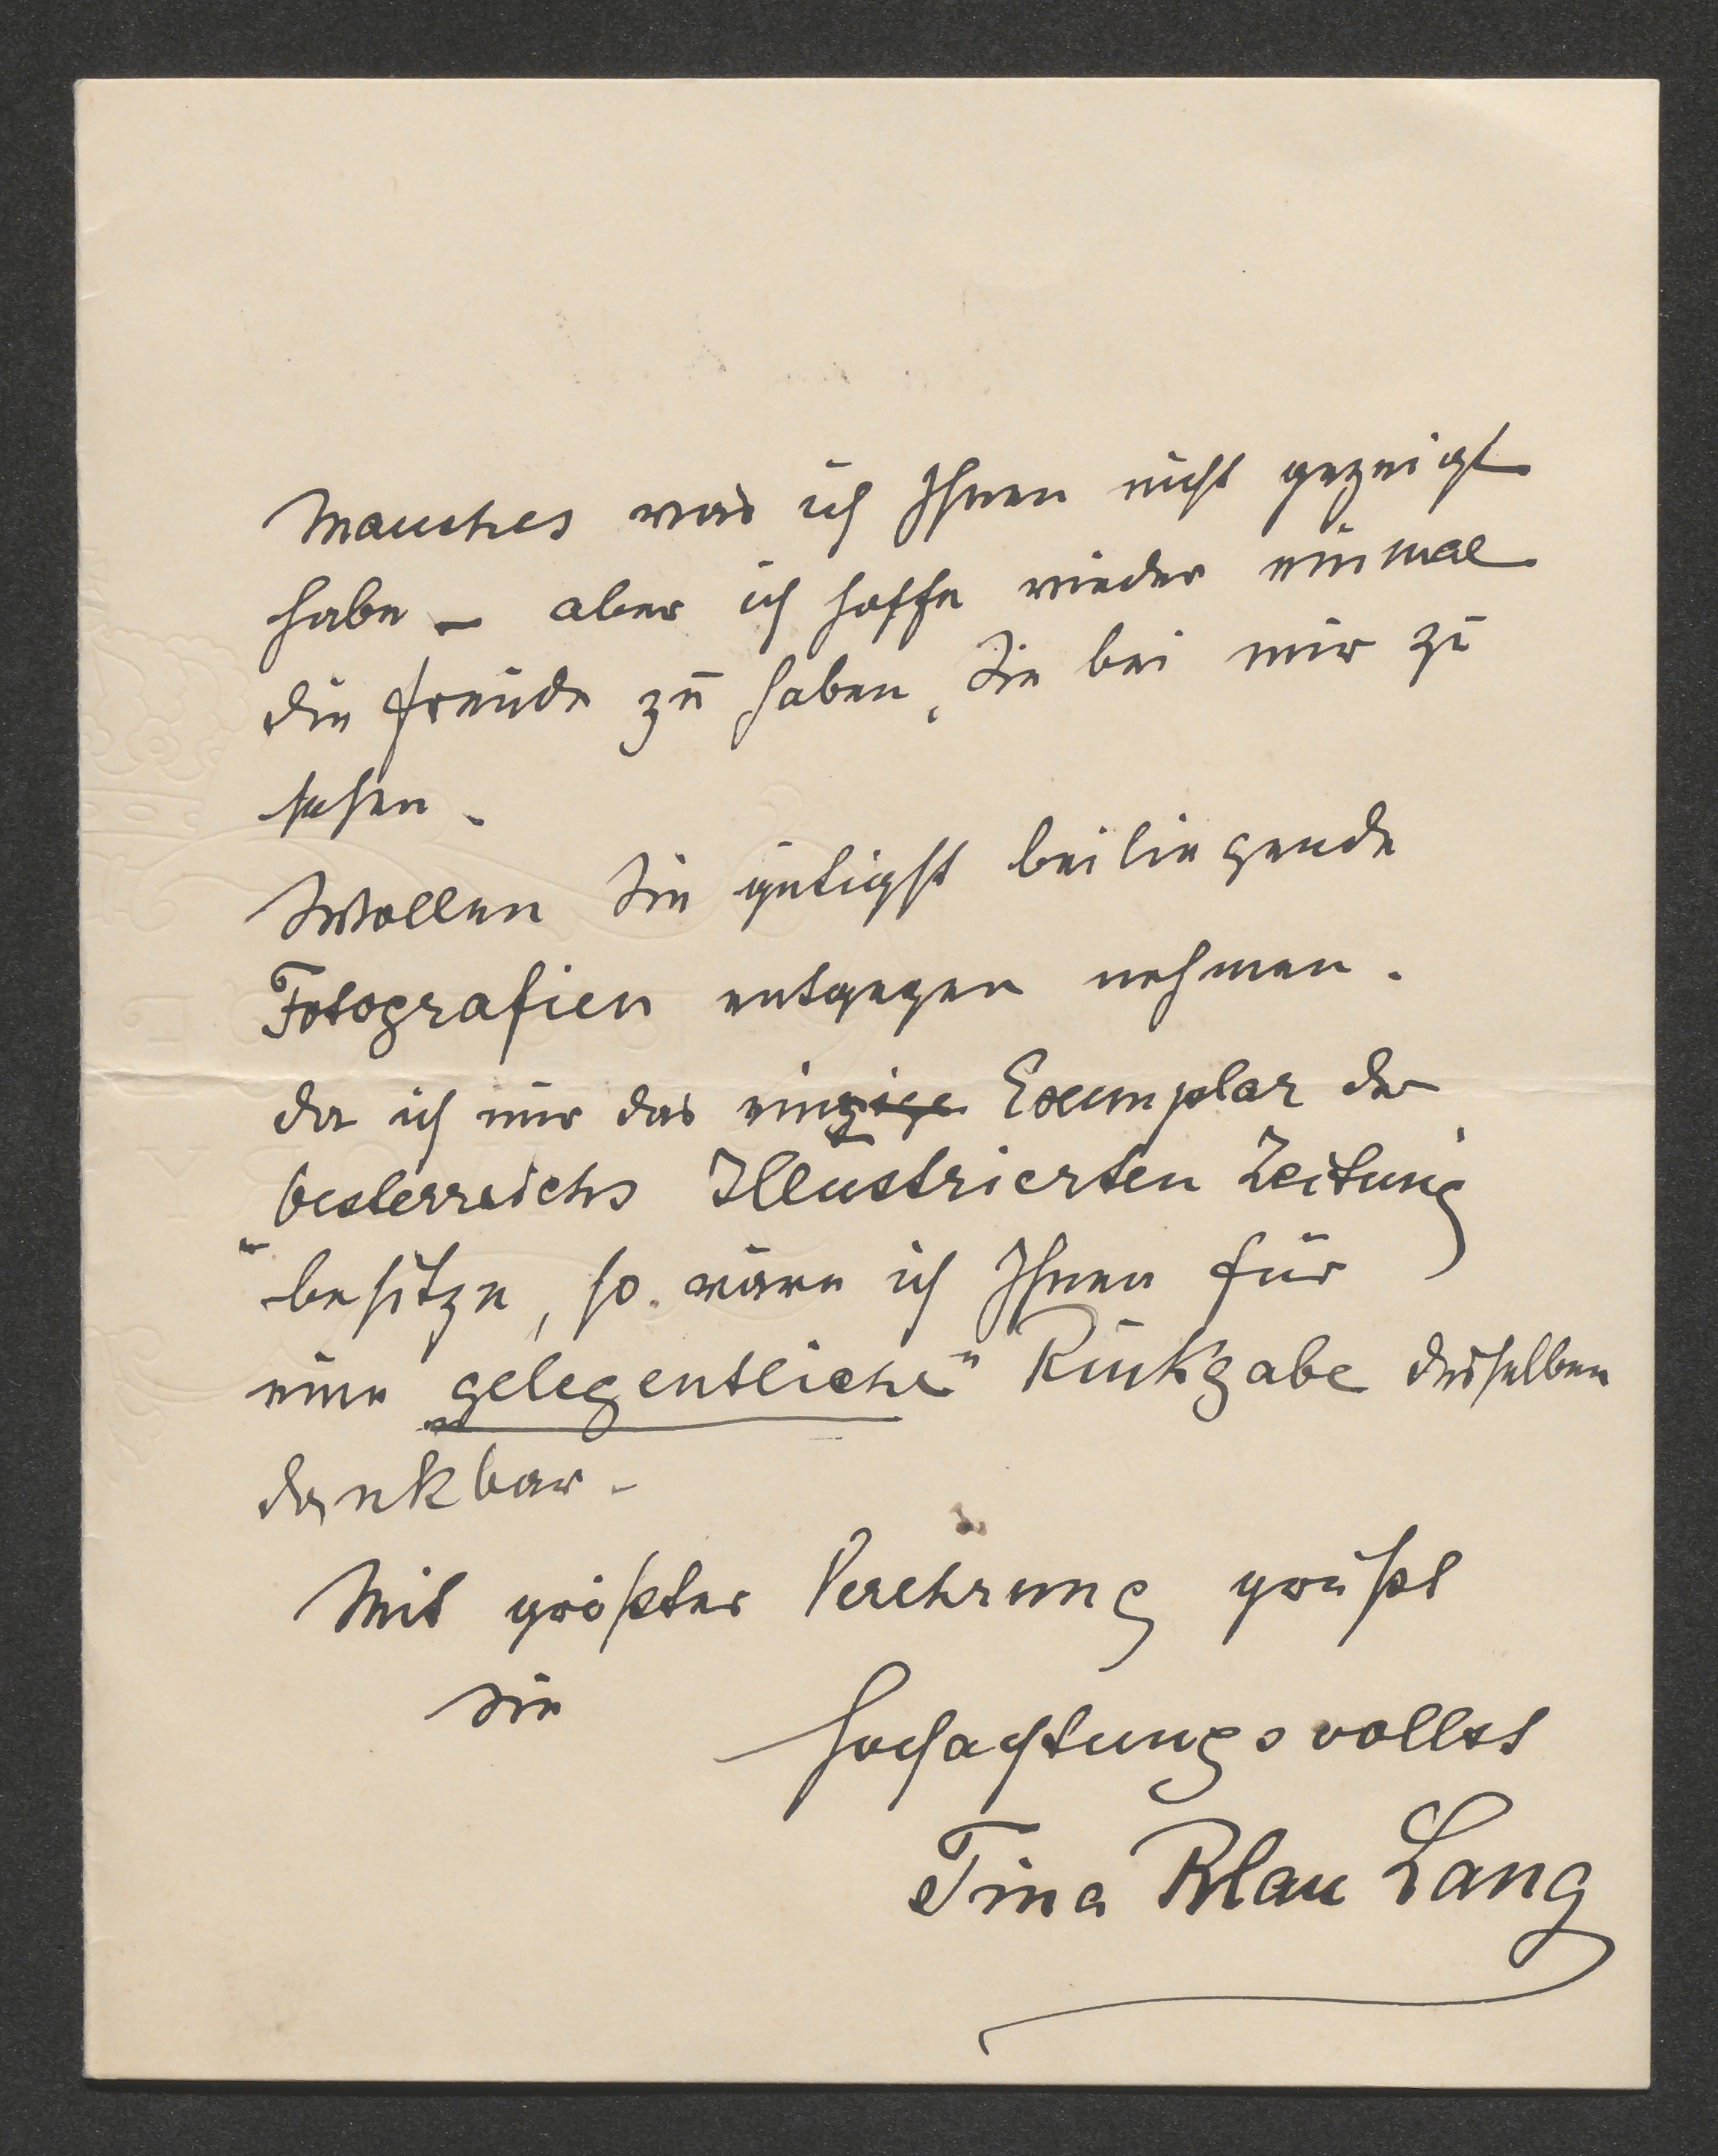 Manches was ich Ihnen nicht gezeigt
habe – aber ich hoffe wieder einmal
die Freude zu haben, Sie bei mir zu
sehen.
Wollen Sie gütigst beiliegende
Fotografien entgegen nehmen.
da ich nur das einzige Exemplar der
„Oesterreichs Illustrierten Zeitung
besitze, so wäre ich Ihnen für
eine „gelegentliche" Rückgabe desselben
dankbar.
Mit größter Verehrung grüßt
Sie hochachtungsvollst
Tina Blau Lang